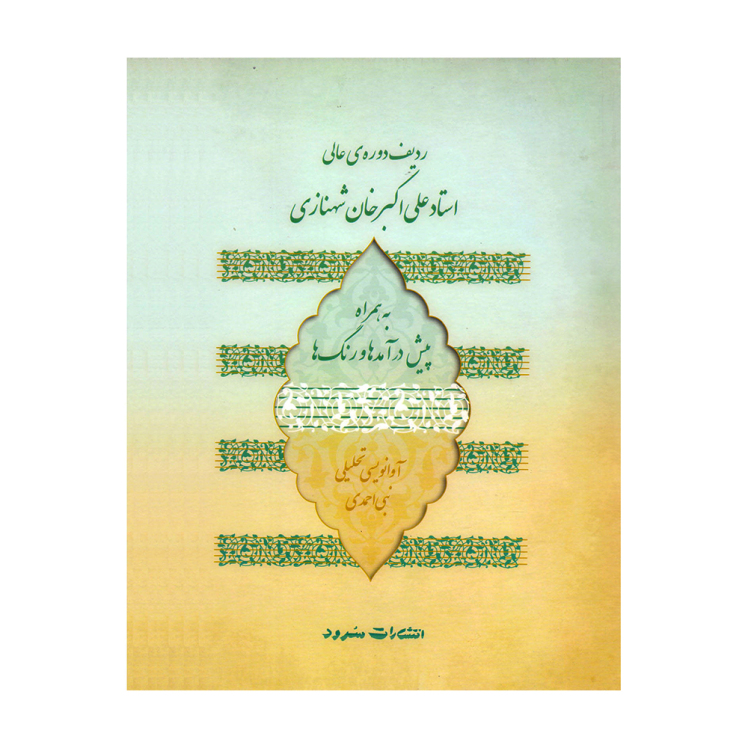 ردیف دوره‌ی عالی
استاد علی اکبرخان شهنازی
به همراه
پیش درآمدها و رنگ‌ها
آوانویسی تحلیلی
نبی احمدی
انتشارات سرود